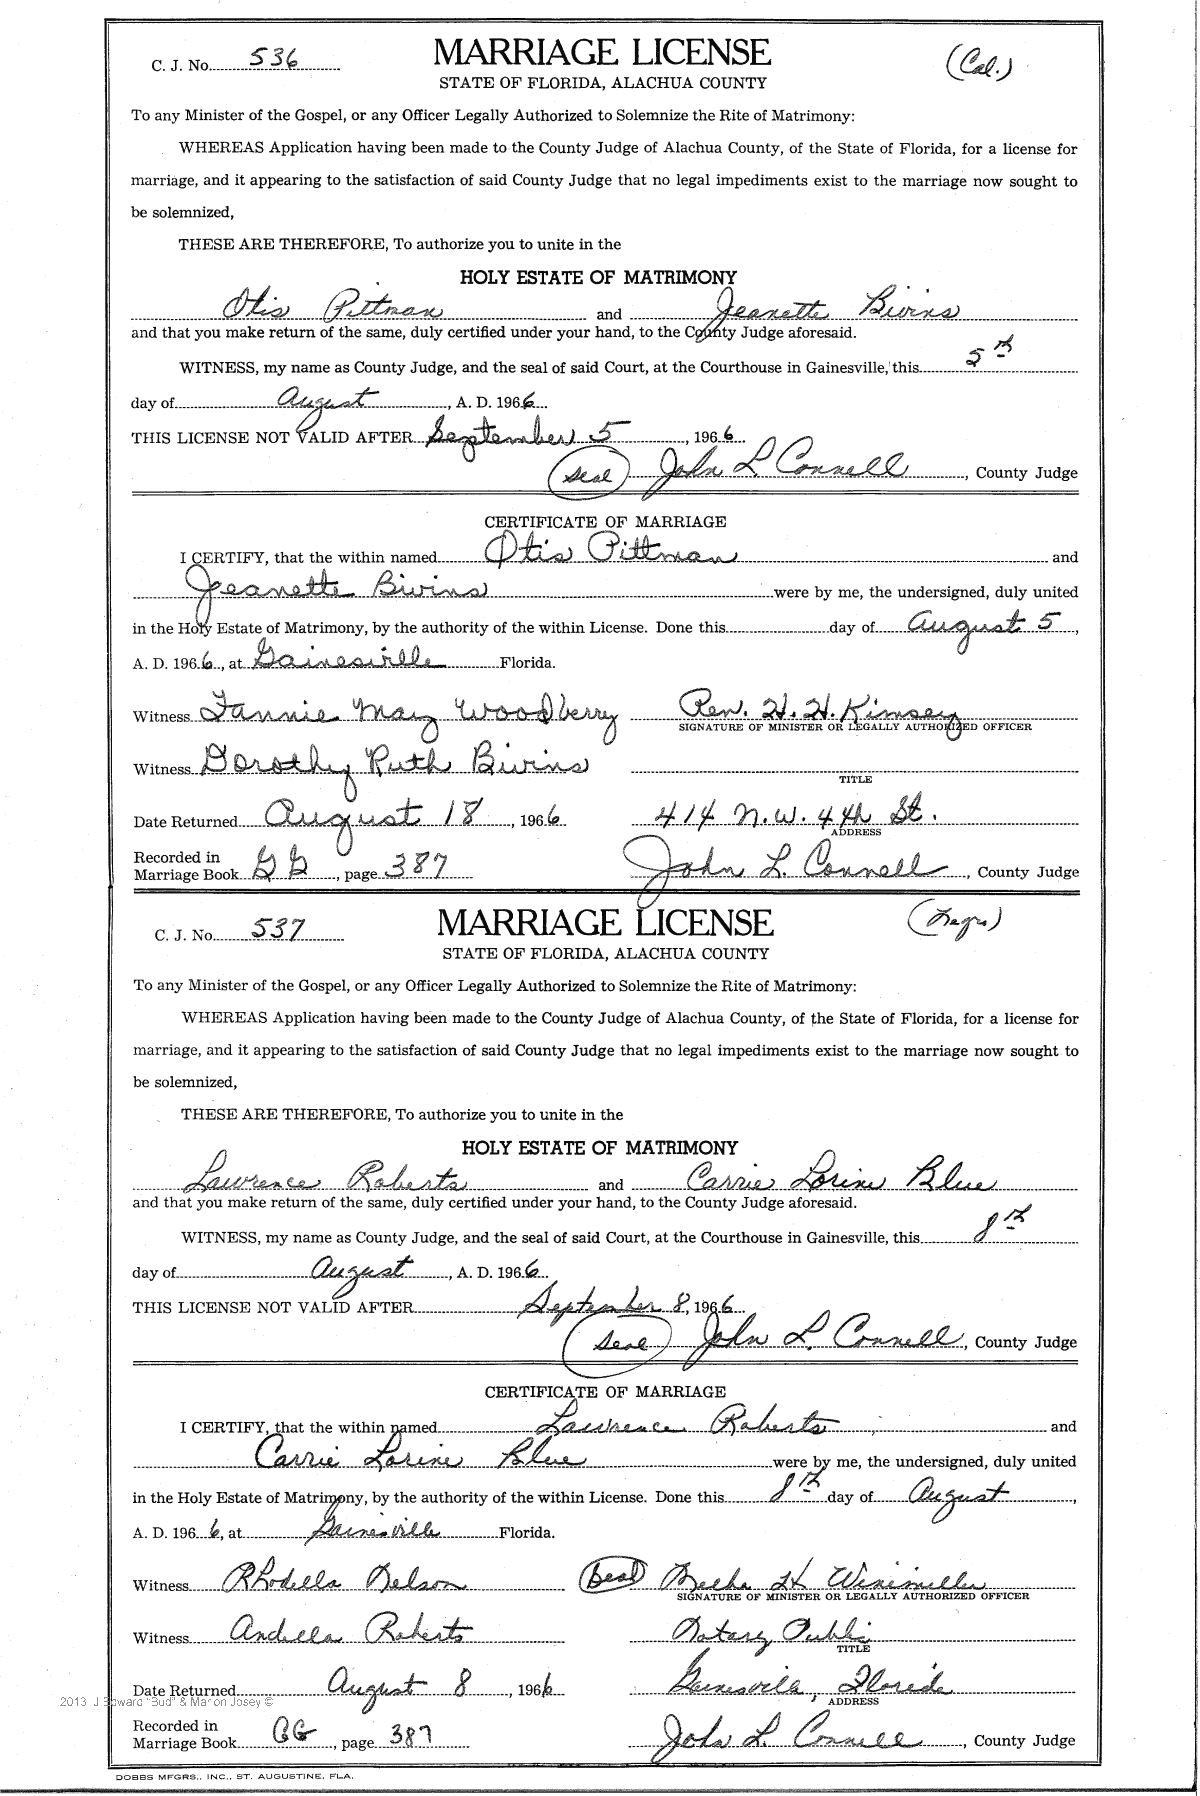 C. J. No. 536
MARRIAGE LICENSE
(Col.)
STATE OF FLORIDA, ALACHUA COUNTY
To any Minister of the Gospel, or any Officer Legally Authorized to Solemnize the Rite of Matrimony:
WHEREAS Application having been made to the County Judge of Alachua County, of the State of Florida, for a license for
marriage, and it appearing to the satisfaction of said County Judge that no legal impediments exist to the marriage now sought to
be solemnized,
THESE ARE THEREFORE, To authorize you to unite in the
HOLY ESTATE OF MATRIMONY
Otis Pittman and Jeanette Bivins
and that you make return of the same, duly certified under your hand, to the County Judge aforesaid.
WITNESS, my name as County Judge, and the seal of said Court, at the Courthouse in Gainesville, this 5th
day of August, A. D. 1966
THIS LICENSE NOT VALID AFTER September 5, 1966
(Seal) John L. Connell, County Judge
CERTIFICATE OF MARRIAGE
I CERTIFY, that the within named Otis Pittman and
Jeanette Bivins were by me, the undersigned, duly united
in the Holy Estate of Matrimony, by the authority of the within License. Done this day of August 5,
A. D. 1966, at Gainesville Florida.
Witness Fannie May Woodberry Rev. H. H. Kimsey
SIGNATURE OF MINISTER OR LEGALLY AUTHORIZED OFFICER
Witness Dorothy Ruth Bivins
TITLE
Date Returned August 18, 1966 414 N.W. 4th St.
ADDRESS
Recorded in
Marriage Book GG, page 387 John L. Connell, County Judge
C. J. No. 537
MARRIAGE LICENSE
(Negro)
STATE OF FLORIDA, ALACHUA COUNTY
To any Minister of the Gospel, or any Officer Legally Authorized to Solemnize the Rite of Matrimony:
WHEREAS Application having been made to the County Judge of Alachua County, of the State of Florida, for a license for
marriage, and it appearing to the satisfaction of said County Judge that no legal impediments exist to the marriage now sought to
be solemnized,
THESE ARE THEREFORE, To authorize you to unite in the
HOLY ESTATE OF MATRIMONY
Lawrence Roberts and Carrie Lorine Blue
and that you make return of the same, duly certified under your hand, to the County Judge aforesaid.
WITNESS, my name as County Judge, and the seal of said Court, at the Courthouse in Gainesville, this 8th
day of August, A. D. 1966
THIS LICENSE NOT VALID AFTER September 8, 1966
(Seal) John L. Connell, County Judge
CERTIFICATE OF MARRIAGE
I CERTIFY, that the within named Lawrence Roberts and
Carrie Lorine Blue were by me, the undersigned, duly united
in the Holy Estate of Matrimony, by the authority of the within License. Done this 8th day of August,
A. D. 1966, at Gainesville Florida.
Witness Rhodella Nelson (Seal)
SIGNATURE OF MINISTER OR LEGALLY AUTHORIZED OFFICER
Witness Andella Roberts Notary Public
TITLE
Date Returned August 8, 1966 Gainesville, Florida
ADDRESS
2013 J Edward "Bud" & Marion Josey ©
Recorded in
Marriage Book GG, page 387 John L. Connell, County Judge
DOBBS MFGRS., INC., ST. AUGUSTINE, FLA.